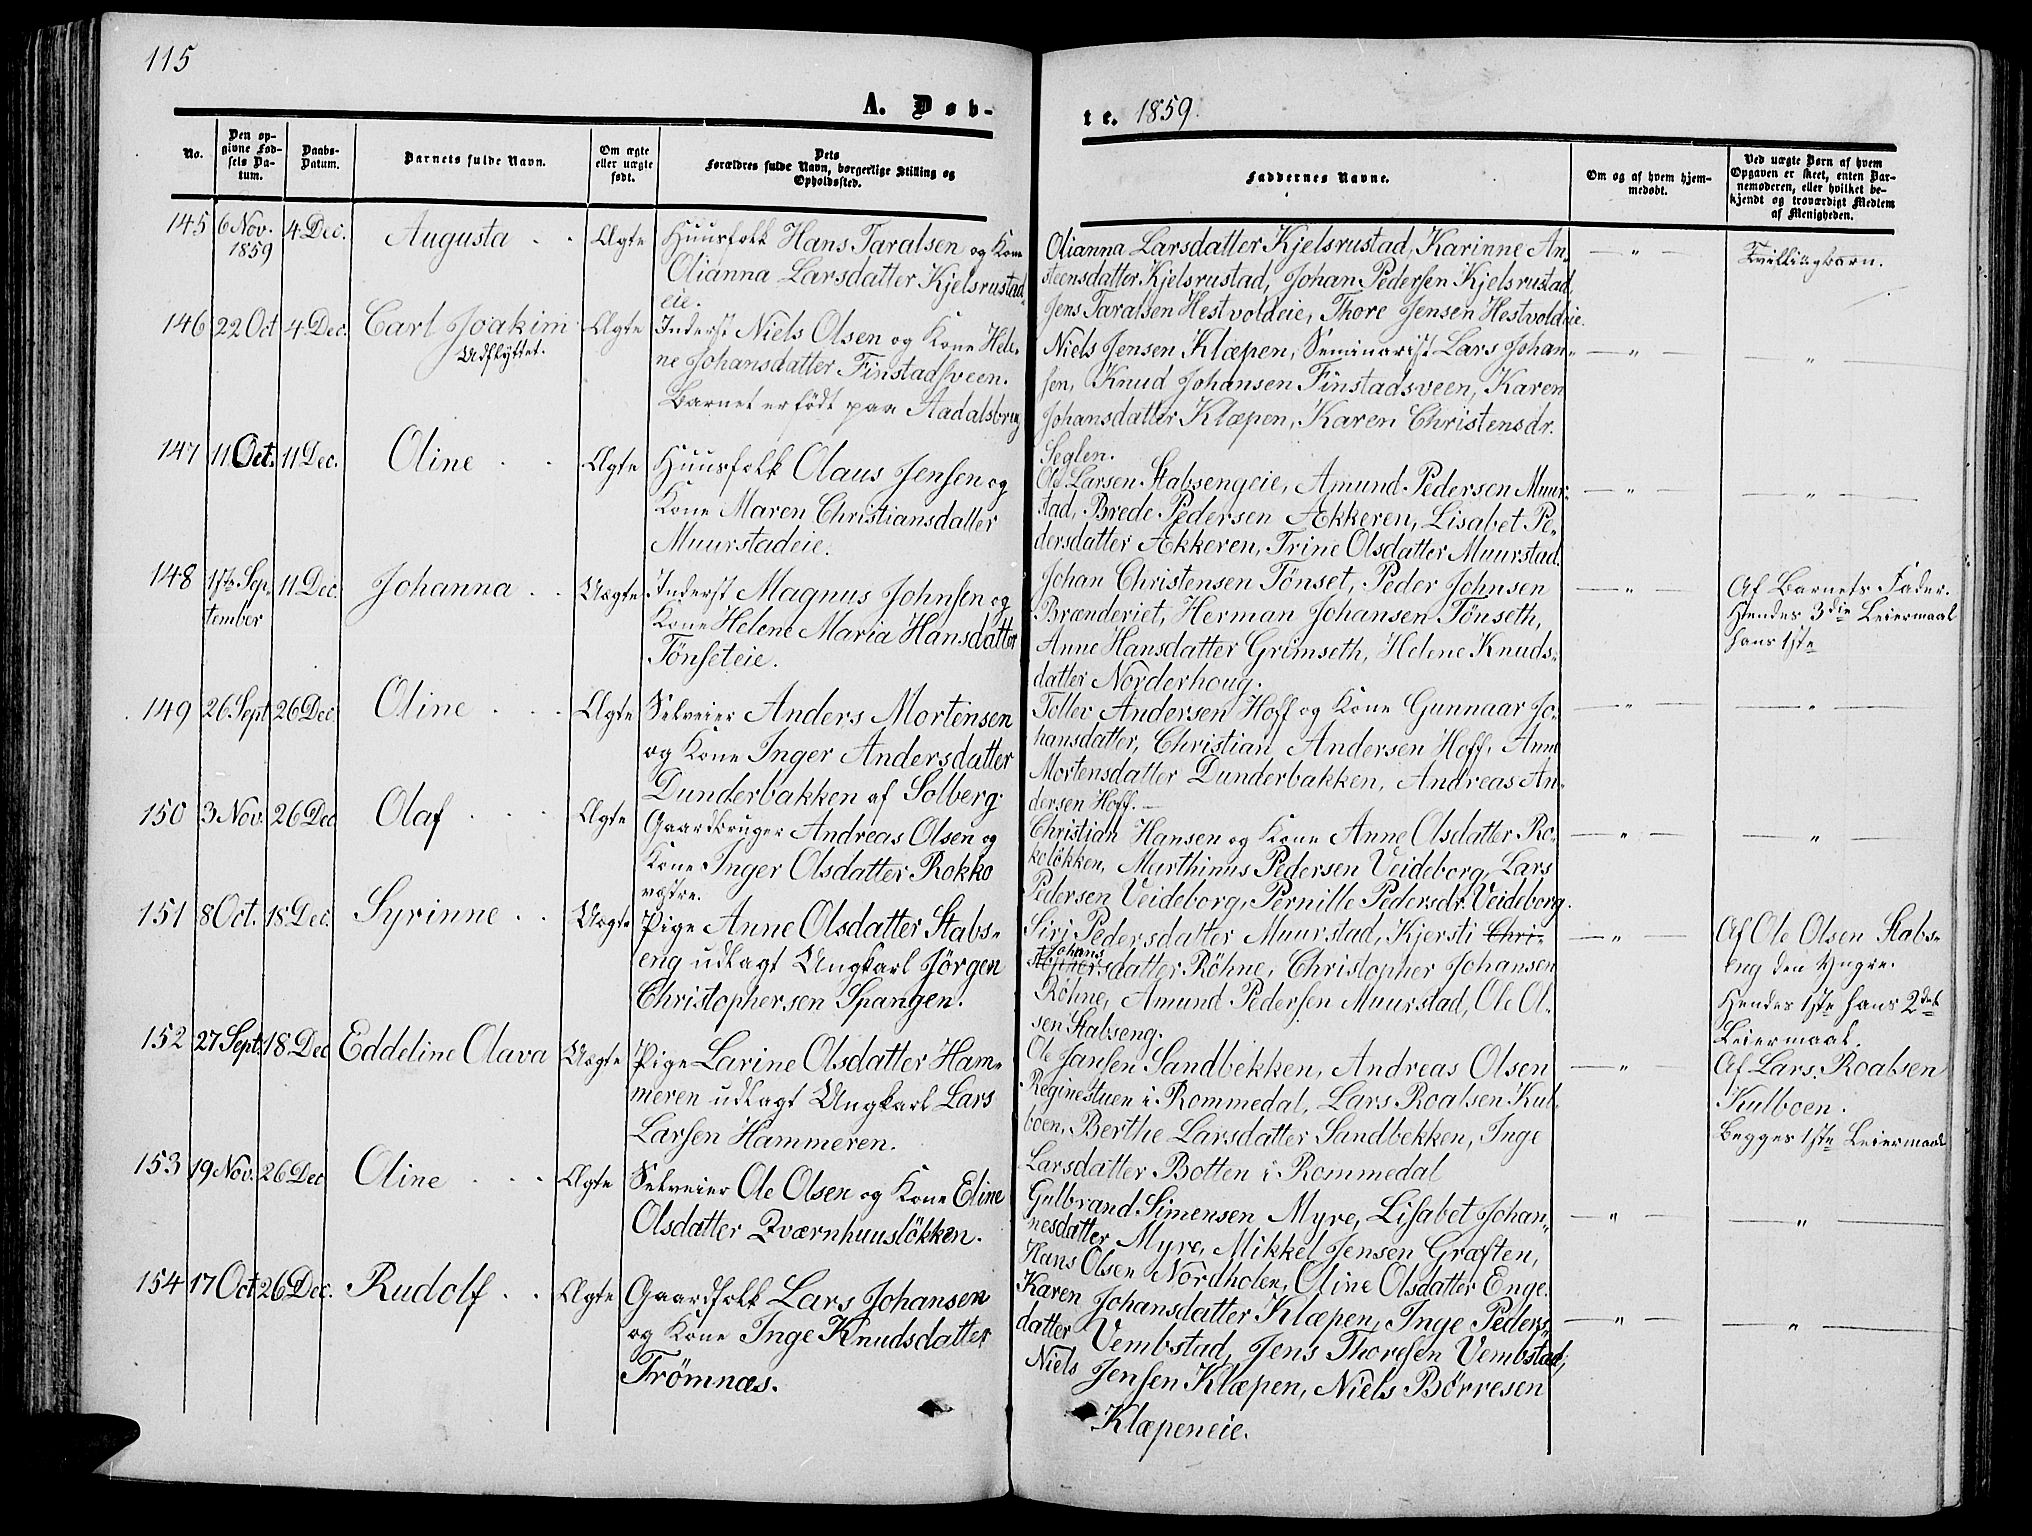 115
A. Døb-
te. 1859.
No.
Den op-
givne Fød-
sels Da-
tum.
Daabs-
Datum.
Barnets fulde Navn.
Om ægte
eller uægte
født.
Dets
Forældres fulde Navn, borgerlige Stilling og
Opholdssted.
Faddernes Navne.
Om og af hvem hjem-
medøbt.
Ved uægte Børn af hvem
Opgaven er skeet, enten Bar-
nemoderen, eller hvilket be-
kjendt og troværdigt Medlem
af Menigheden.
145 6 Nov. 4 Dec. Augusta Ægte Huusfolk Hans Taralsen og Kone
1859 Olianna Larsdatter Kjelsrustad-
eie.
Olianna Larsdatter Kjelsrustad, Karinne An-
steensdatter Kjelsrustad, Johan Pedersen Kjelsrustad,
Jens Taralsen Hestvoldeie, Thore Jensen Hestvoldeie.
— " — Tvillingbarn.
146 22 Oct 4 Dec. Carl Joakim Ægte Inderst Niels Olsen og Kone Hele-
Udflyttet. ne Johansdatter Finstadsveen.
Barnet er födt paa Aadalsbrug
Niels Jensen Klæpen, Seminarist Lars Johan-
sen, Knud Johansen Finstadsveen, Karen
Johansdatter Klæpen, Karen Christensdr.
Seglen.
— " — — " —
147 11 Oct. 11 Dec. Oline Ægte Huusfolk Olaus Jensen og
Kone Maren Christiansdatter
Muurstadeie.
Ole Larsen Stabsengeie, Amund Pedersen Muur-
stad, Brede Pedersen Ækkeren, Lisabet Pe-
dersdatter Ækkeren, Trine Olsdatter Muurstad.
— " — — " —
148 Sep- 11 Dec. Johanna Uægte Inderst Magnus Johnsen og
tember Kone Helene Maria Hansdatter
Tönseteie.
Johan Christensen Tönset, Peder Johnsen
Brænderiet, Herman Johansen Tönseth,
Anne Hansdatter Grimseth, Helene Knuds-
datter Norderhoug.
— " — Af Barnets Fader.
Hendes 3die Leiermaal
hans 1ste
149 26 Sept 26 Dec. Oline Ægte Selveier Anders Mortensen
og Kone Inger Andersdatter
Dunderbakken af Solberg.
Tollev Andersen Hoff og Kone Gunnaar Jo-
hansdatter, Christian Andersen Hoff, Anne
Mortensdatter Dunderbakken, Andreas An-
dersen Hoff. —
— " — — " —
150 3 Nov. 26 Dec Olaf Ægte Gaardbruger Andreas Olsen og
Kone Inger Olsdatter Rokko
vestre.
Christian Hansen og Kone Anne Olsdatter Ro-
kolökken, Marthinus Pedersen Veideborg, Lars
Pedersen Veideborg, Pernille Pedersdr. Veideborg.
— " — — " —
151 8 Oct. 18 Dec. Syrinne Uægte Pige Anne Olsdatter Stabs-
eng udlagt Ungkarl Jörgen
Christophersen Spangen.
Siri Pedersdatter Muurstad, Kjersti Chri-
Johans
datter Röhne, Christopher Johansen
Röhne, Amund Pedersen Muurstad, Ole Ol-
sen Stabseng.
— " — Af Ole Olsen Stabs-
eng den Yngre.
Hendes 1ste hans 2det
Leiermaal.
152 27 Sept. 18 Dec Eddeline Olava Uægte Pige Larine Olsdatter Ham-
meren udlagt Ungkarl Lars
Larsen Hammeren.
Ole Jansen Sandbekken, Andreas Olsen
Reginestuen i Rommedal, Lars Roalsen Kul-
boen, Berthe Larsdatter Sandbekken, Inge
Larsdatter Botten i Rommedal
— " — Af Lars Roalsen
Kulboen.
Begges 1ste Leiermaal
153 19 Nov. 26 Dec Oline Ægte Selveier Ole Olsen og Kone Eline
Olsdatter Qværnhuuslökken.
Gulbrand Simensen Myre, Lisabet Johan-
nesdatter Myre, Mikkel Jensen Græften,
Hans Olsen Nordholen, Oline Olsdatter Enge.
— " — — " —
154 17 Oct 26 Dec. Rudolf Ægte Gaardfolk Lars Johansen
og Kone Inge Knudsdatter
Trömnæs.
Karen Johansdatter Klæpen, Inge Peders-
datter Vembstad, Jens Thoresen Vembstad,
Niels Jensen Klæpen, Niels Börresen
Klæpeneie.
— " — — " —